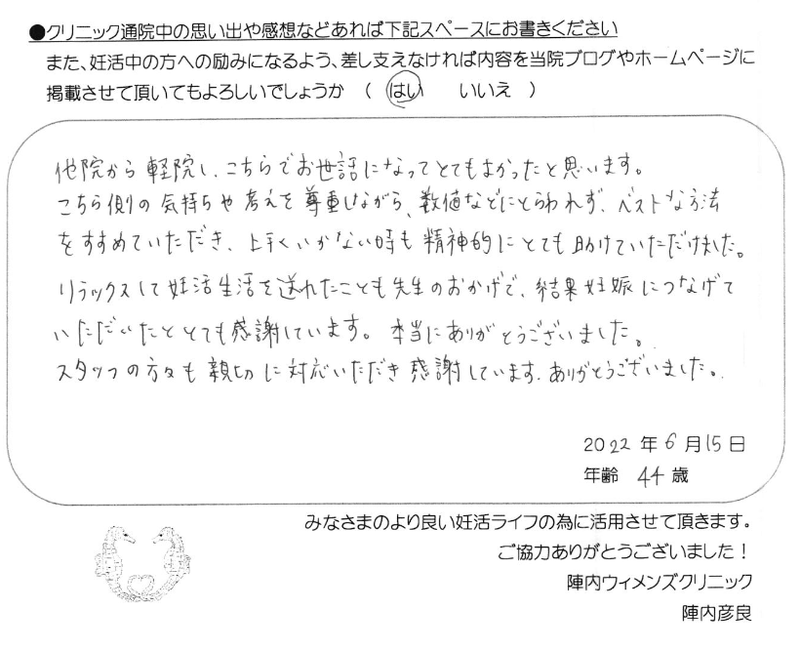 ●クリニック通院中の思い出や感想などあれば下記スペースにお書きください
また、妊活中の方への励みになるよう、差し支えなければ内容を当院ブログやホームページに
掲載させて頂いてもよろしいでしょうか （ はい いいえ ）
他院から軽院し、こちらでお世話になってとてもよかったと思います。
こちら側の気持ちや考えを尊重しながら、数値などにとらわれず、ベストな方法
をすすめていただき、上手くいかない時も精神的にとても助けていただけました。
リラックスして妊活生活を送れたことも先生のおかげで、結果妊娠につなげて
いただいたととても感謝しています。本当にありがとうございました。
スタッフの方々も親切に対応いただき感謝しています。ありがとうございました。
2022年6月15日
年齢 44歳
みなさまのより良い妊活ライフの為に活用させて頂きます。
ご協力ありがとうございました！
陣内ウィメンズクリニック
陣内彦良